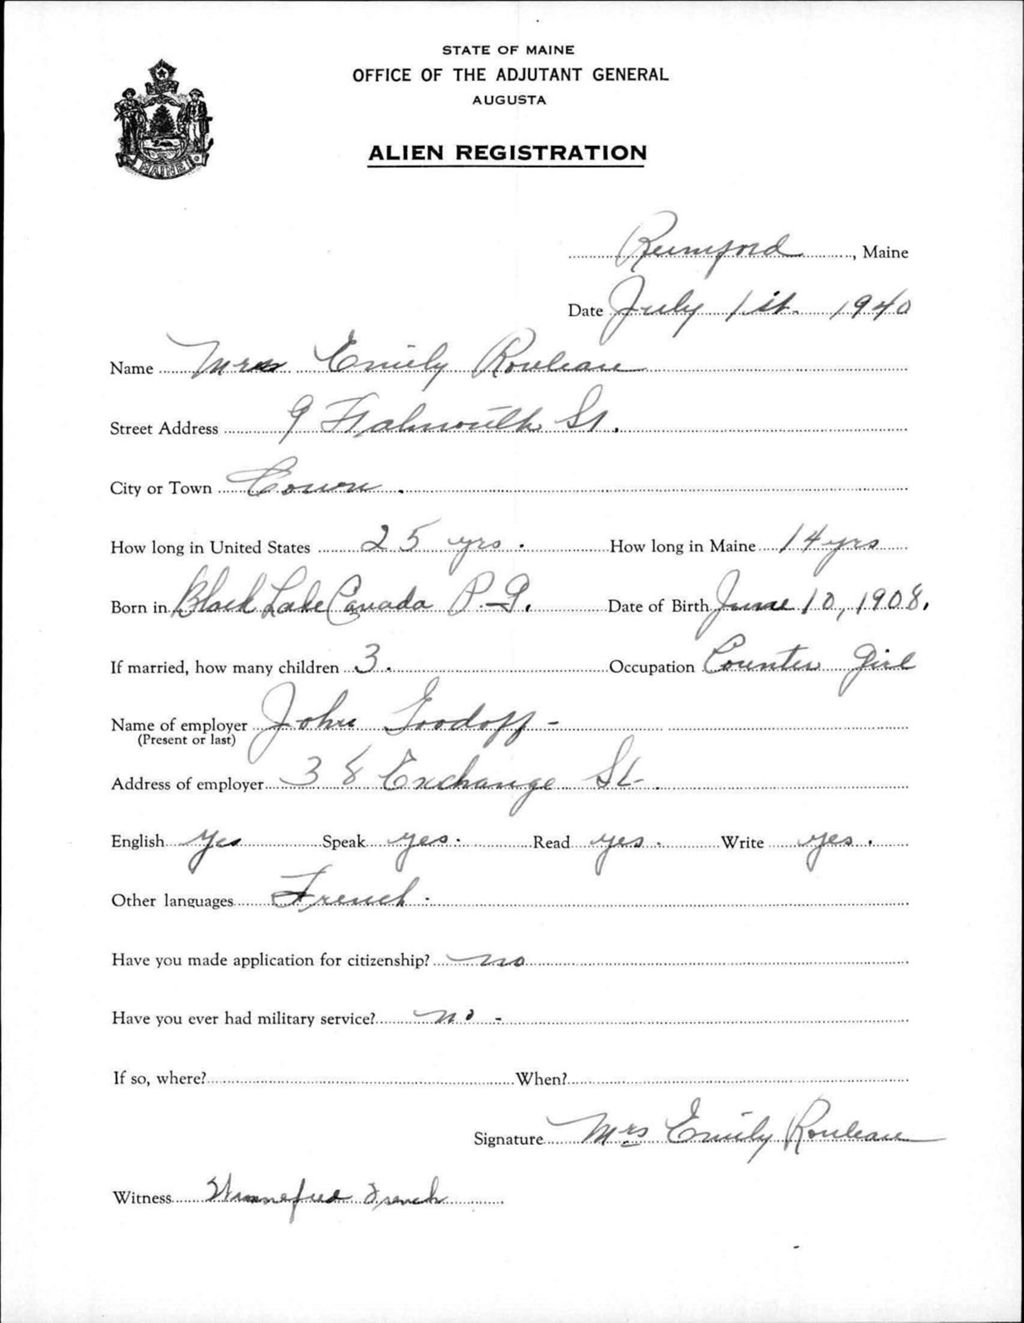 STATE OF MAINE
OFFICE OF THE ADJUTANT GENERAL
AUGUSTA
ALIEN REGISTRATION
MAINE
Rumford, Maine
Date July 1st. 1940
Name Mrs Emily Rouleau
Street Address 9 Falmouth St.
City or Town
How long in United States 25 yrs. How long in Maine 14 yrs
Born in Black Lake Canada P-Q. Date of Birth June 10, 1908.
If married, how many children 3. Occupation Counter Girl
Name of employer John Goodoff -
(Present or last)
Address of employer 38 Exchange St.
English Yes Speak yes. Read yes. Write yes.
Other languages French.
Have you made application for citizenship? no
Have you ever had military service? no -
If so, where? When?
Signature Mrs Emily Rouleau
Witness Winnefred French